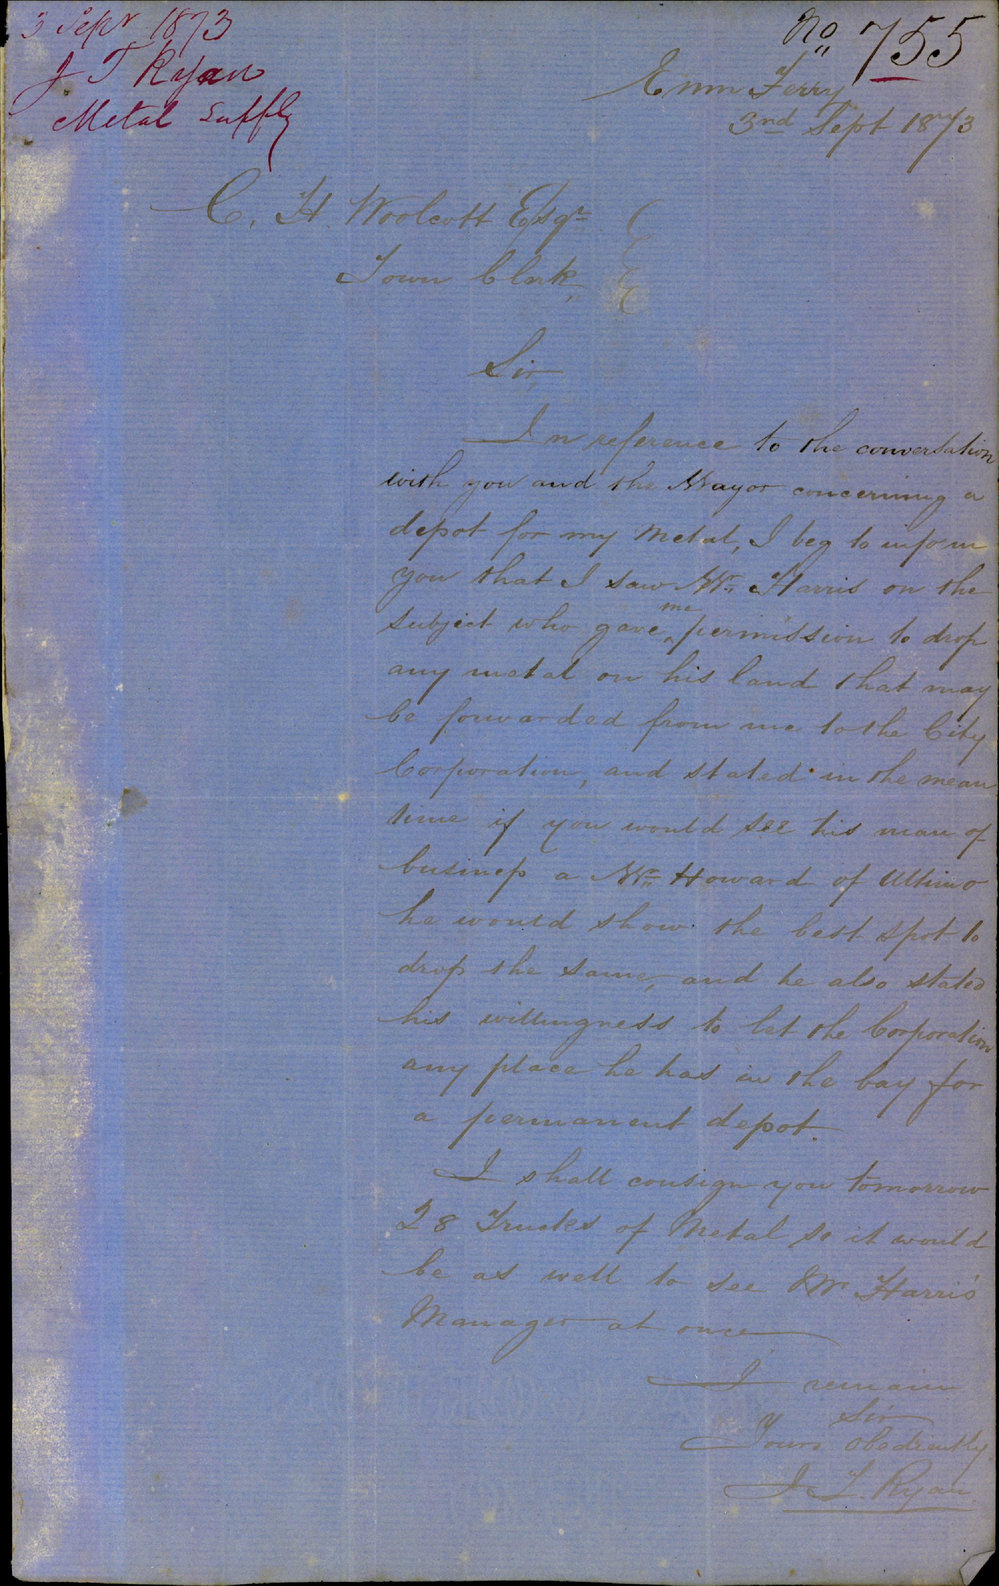 3 Sepr 1873
J T Ryan
Metal Supply
No 755
Emu Ferry
3nd Sept 1873
C. H. Woolcott Esqr
Town Clerk,
Sir,
In reference to the conversation
with you and the Mayor concerning a
depot for my Metal, I beg to inform
you that I saw Mr. Harris on the
subject who gave me permission to drop
any metal on his land that may
be forwarded from me to the City
Corporation, and stated in the mean
time if you would see his man of
business a Mr. Howard of Ultimo
he would show the best spot to
drop the same, and he also stated
his willingness to let the Corporation
any place he has in the bay for
a permanent depot.
I shall consign you tomorrow
28 Trucks of Metal so it would
be as well to see Mr Harris'
Manager at once
I remain
Sir
Yours obediently
J. T. Ryan